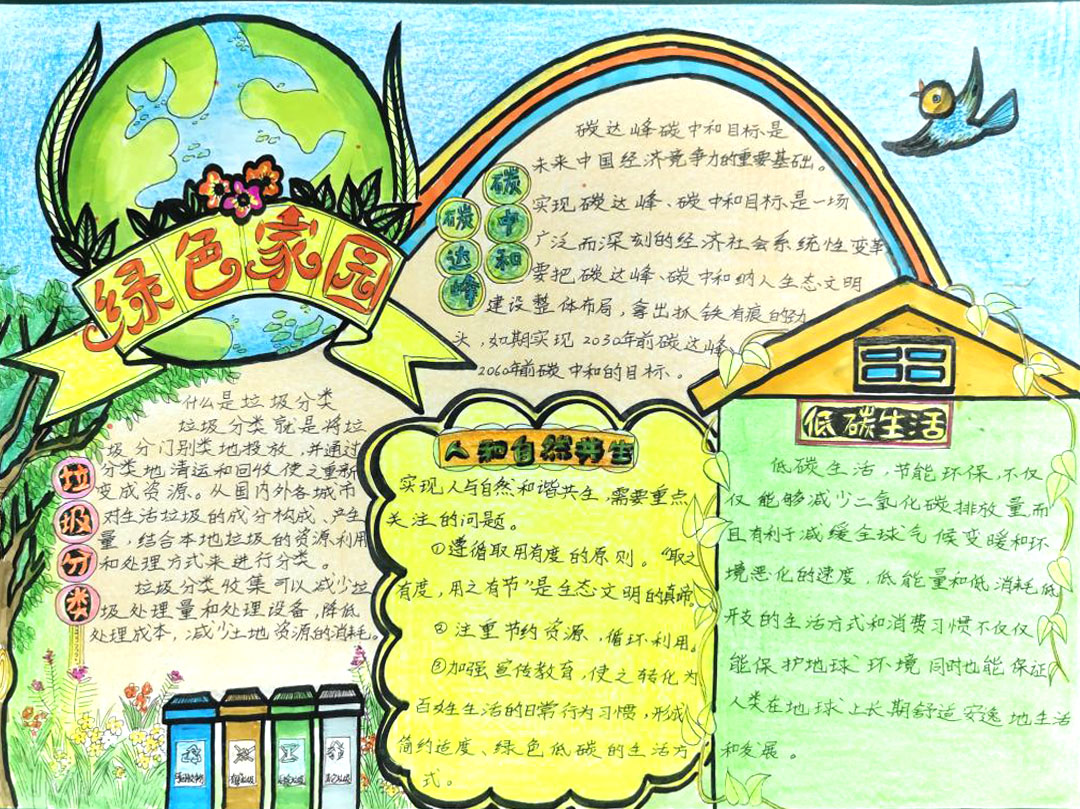 绿色家园
碳达峰
碳中和
碳达峰碳中和目标是
未来中国经济竞争力的重要基础。
实现碳达峰、碳中和目标是一场
广泛而深刻的经济社会系统性变革
要把碳达峰、碳中和纳入生态文明
建设整体布局,拿出抓铁有痕的努力
头,如期实现2030年前碳达峰、
2060年前碳中和的目标。
垃圾分类
什么是垃圾分类
垃圾分类就是将垃
圾分门别类地投放,并通过
分类地清运和回收使之重新
变成资源。从国内外各城市
对生活垃圾的成分构成、产生
量,结合本地垃圾的资源利用
和处理方式来进行分类。
垃圾分类收集可以减少垃
圾处理量和处理设备,降低
处理成本,减少土地资源的消耗。
人和自然共生
实现人与自然和谐共生,需要重点
关注的问题。
①遵循取用有度的原则。“取之
有度,用之有节”是生态文明的真谛。
②注重节约资源,循环利用。
③加强宣传教育,使之转化为
百姓生活的日常行为习惯,形成
简约适度、绿色低碳的生活方
式。
低碳生活
低碳生活,节能环保,不仅
仅能够减少二氧化碳排放量,而
且有利于减缓全球气候变暖和环
境恶化的速度,低能量和低消耗低
开支的生活方式和消费习惯不仅仅
能保护地球环境同时也能保证
人类在地球上长期舒适安逸地生活
和发展。